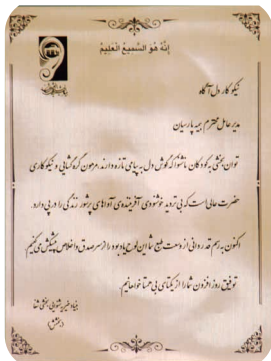 إنَّهُ هُوَ السَّمِیعُ العَلِیمُ
نیکوکار دل آگاه
مدیر عامل محترم بیمه پارسیان
توان بخشی به کودکان ناشنوا که گوش دل به پیامی تازه دارند، مرهون گره گشایی و نیکوکاری
حضرت عالی است که بی تردید خوشنودی آفریننده‌ی آواهای پرشور زندگی را در پی دارد.
اکنون به رسم قدردانی از وسعت طبع شما این لوح یادبود را از سر صدق و اخلاص پیشکش می کنیم
توفیق روز افزون شما را از یکتای بی همتا خواهانیم
بنیاد خیریه شنوایی بخشی شفا